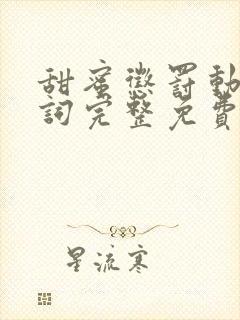 甜蜜懲罰動
詞完整免費
星流寒